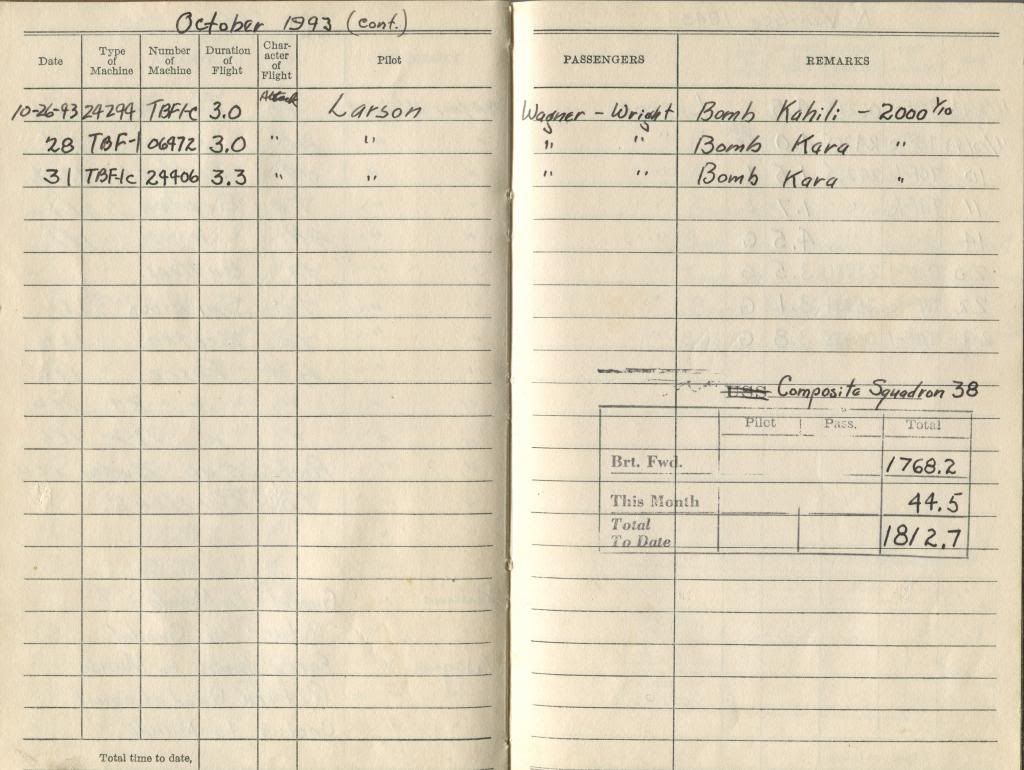 October 1943 (cont.)
Date Type of Machine Number of Machine Duration of Flight Character of Flight Pilot PASSENGERS REMARKS
10-26-43 24294 TBF1c 3.0 Attack Larson Wagner - Wright Bomb Kahili - 2000 1/10
28 TBF-1 06472 3.0 " " " " Bomb Kara "
31 TBF1c 24406 3.3 " " " " Bomb Kara "
USS Composite Squadron 38
Pilot Pass. Total
Brt. Fwd. 1768.2
This Month 44.5
Total To Date 1812.7
Total time to date,